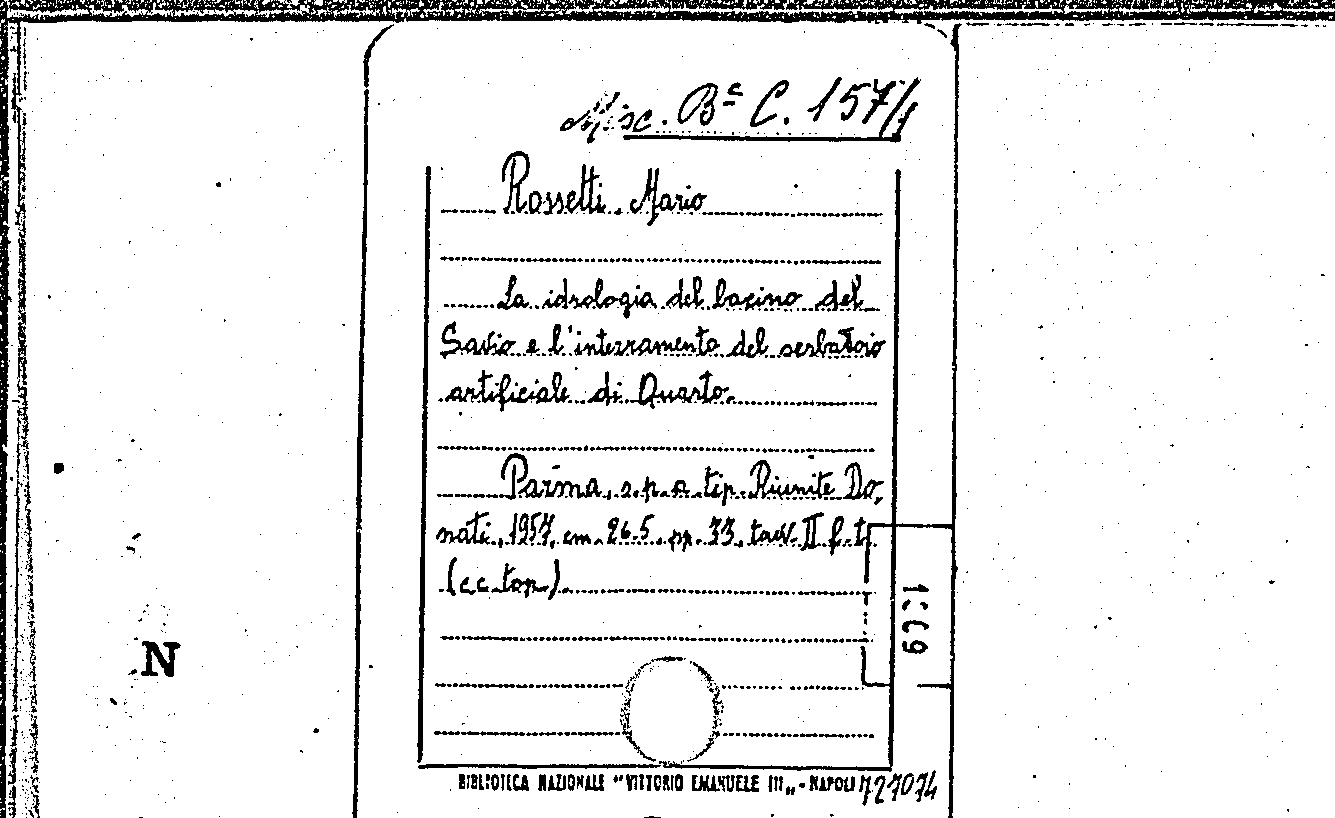 Misc. Bª C. 157/1
Rossetti, Mario
La idrologia del bacino del
Savio e l'interramento del serbatoio
artificiale di Quarto.
Parma, s.p.a. tip. Riunite Do,
nati, 1957, cm. 26.5. pp. 33, tavv. II f.t.
(c.c. top.).
N
BIBLIOTECA NAZIONALE "VITTORIO EMANUELE III„ - NAPOLI 727074